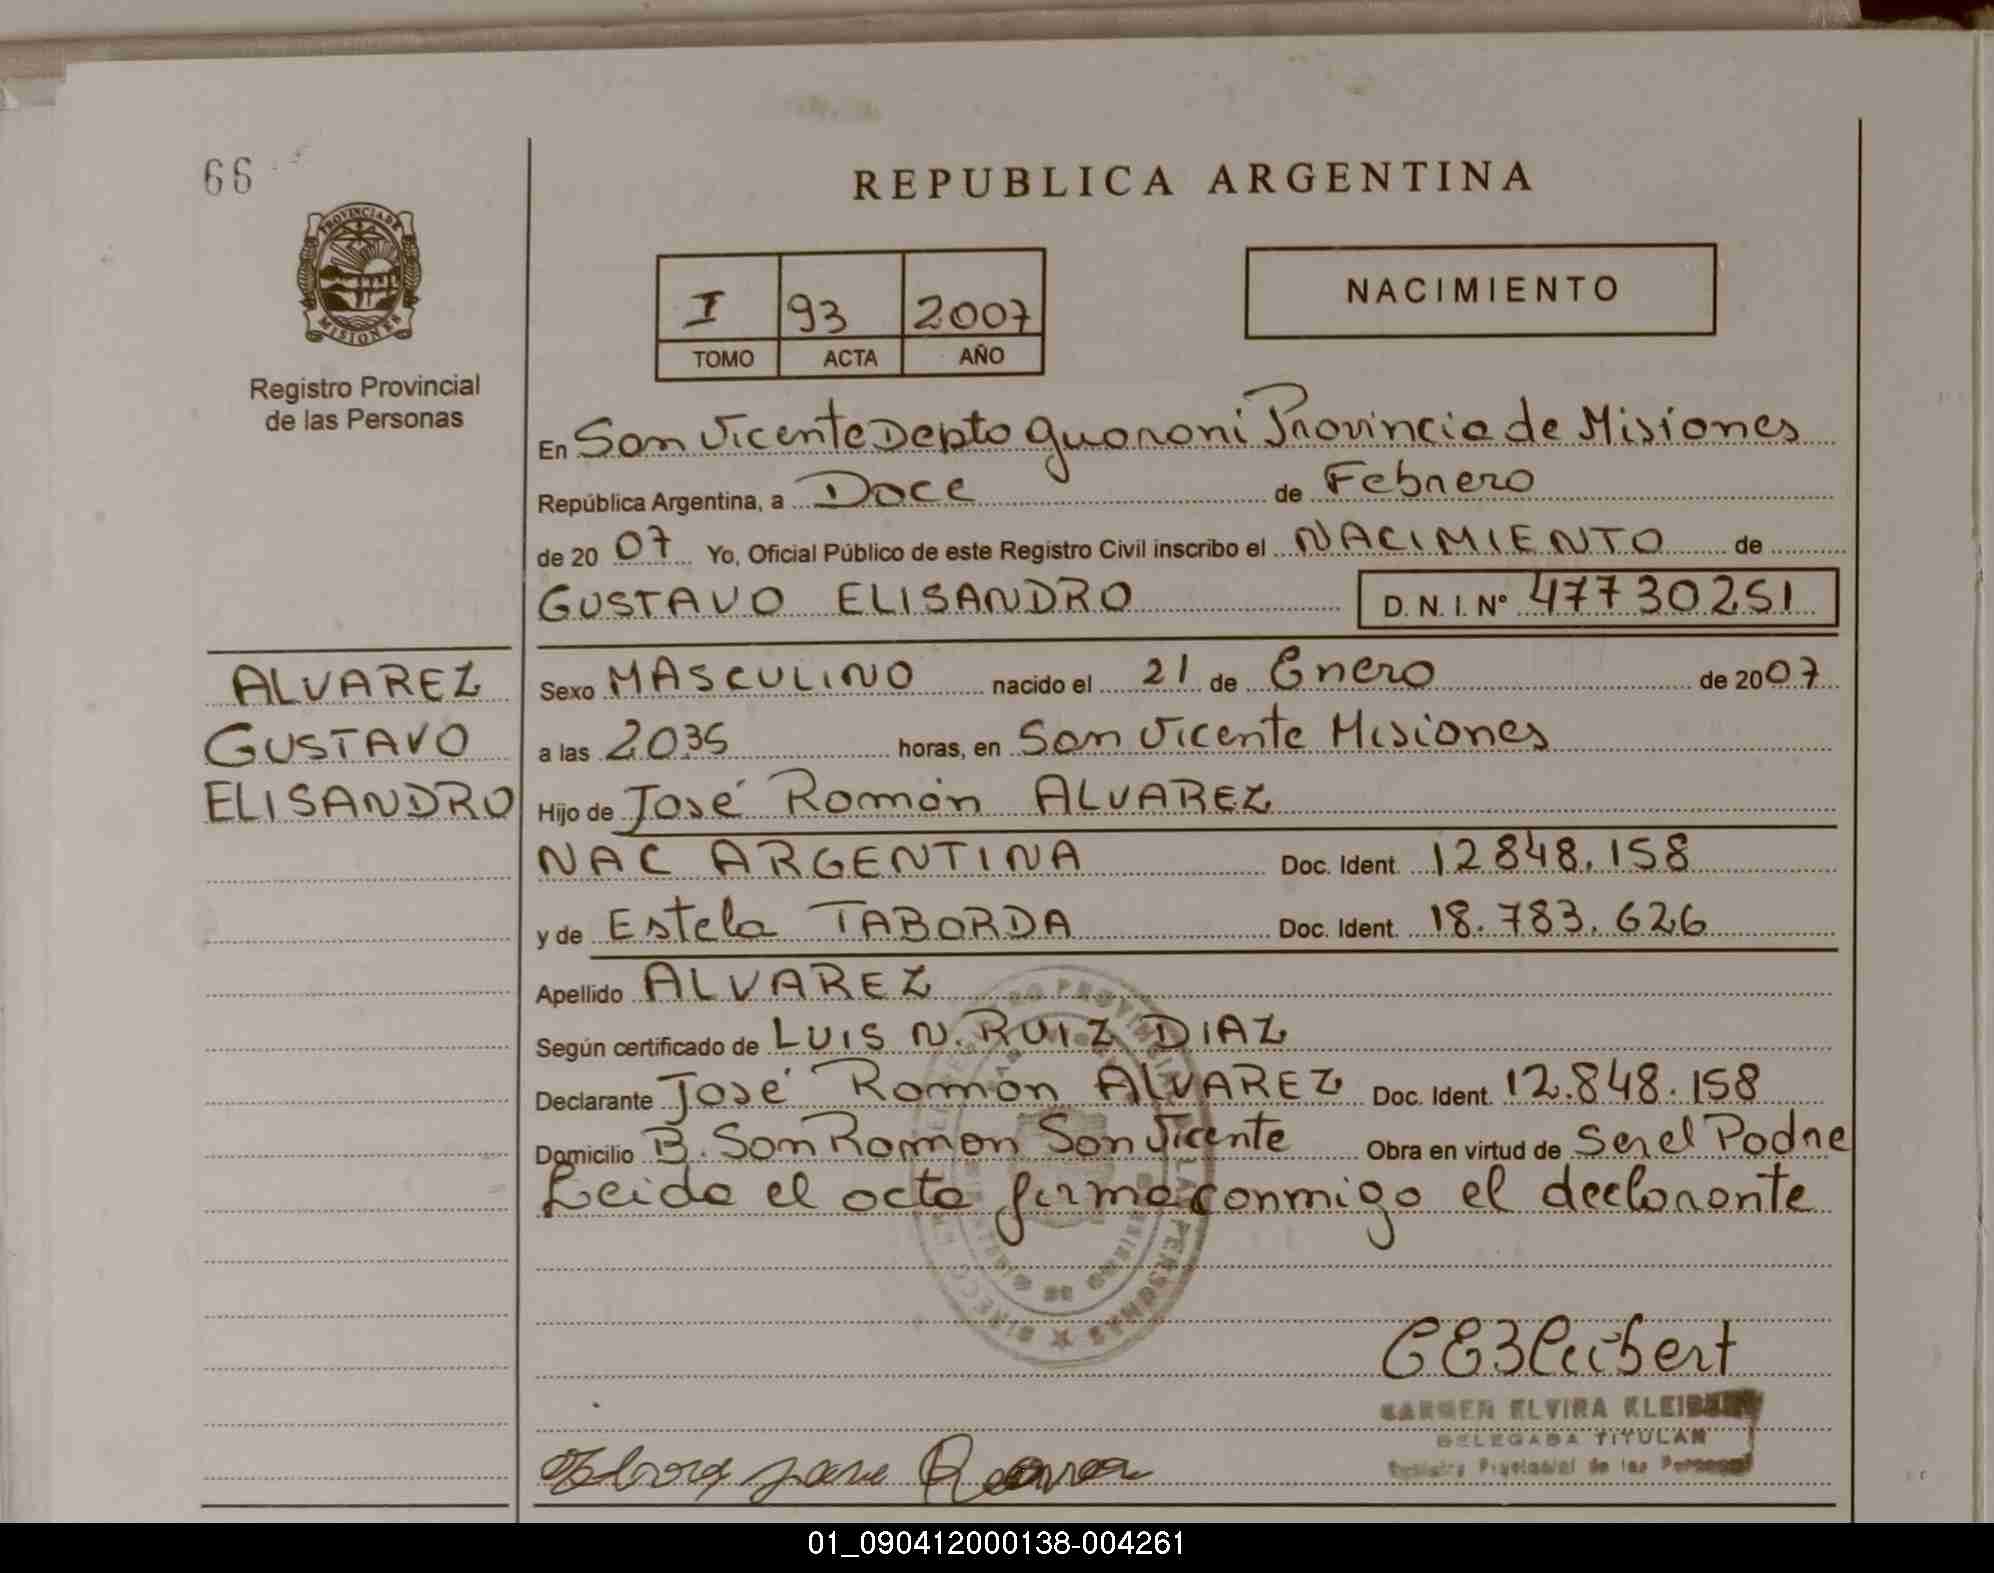 66
REPUBLICA ARGENTINA
PROVINCIA DE MISIONES
Registro Provincial
de las Personas
I 93 2007
TOMO ACTA AÑO
NACIMIENTO
En San Vicente Depto Guaraní Provincia de Misiones
República Argentina, a Doce de Febrero
de 20 07 Yo, Oficial Público de este Registro Civil inscribo el NACIMIENTO de
GUSTAVO ELISANDRO D.N.I. Nº 47730251
ALVAREZ
GUSTAVO
ELISANDRO
Sexo MASCULINO nacido el 21 de Enero de 2007
a las 2035 horas, en San Vicente Misiones
Hijo de José Ramón ALVAREZ
NAC ARGENTINA Doc. Ident. 12848.158
y de Estela TABORDA Doc. Ident. 18.783.626
Apellido ALVAREZ
Según certificado de LUIS N. RUIZ DIAZ
Declarante José Ramón ALVAREZ Doc. Ident. 12.848.158
Domicilio B. San Ramon San Vicente Obra en virtud de Ser el Padre
Leida el acta firma conmigo el declarante
CEKleibert
CARMEN ELVIRA KLEIBERT
DELEGADA TITULAR
Registro Provincial de las Personas
01_090412000138-004261